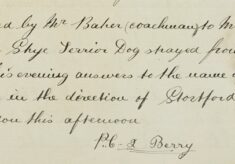 d by Mr Baker (coachman) to M
Skye Terrior Dog strayed from
is evening answers to the name
in the direction of Stortford
on this afternoon
P.C. Berry